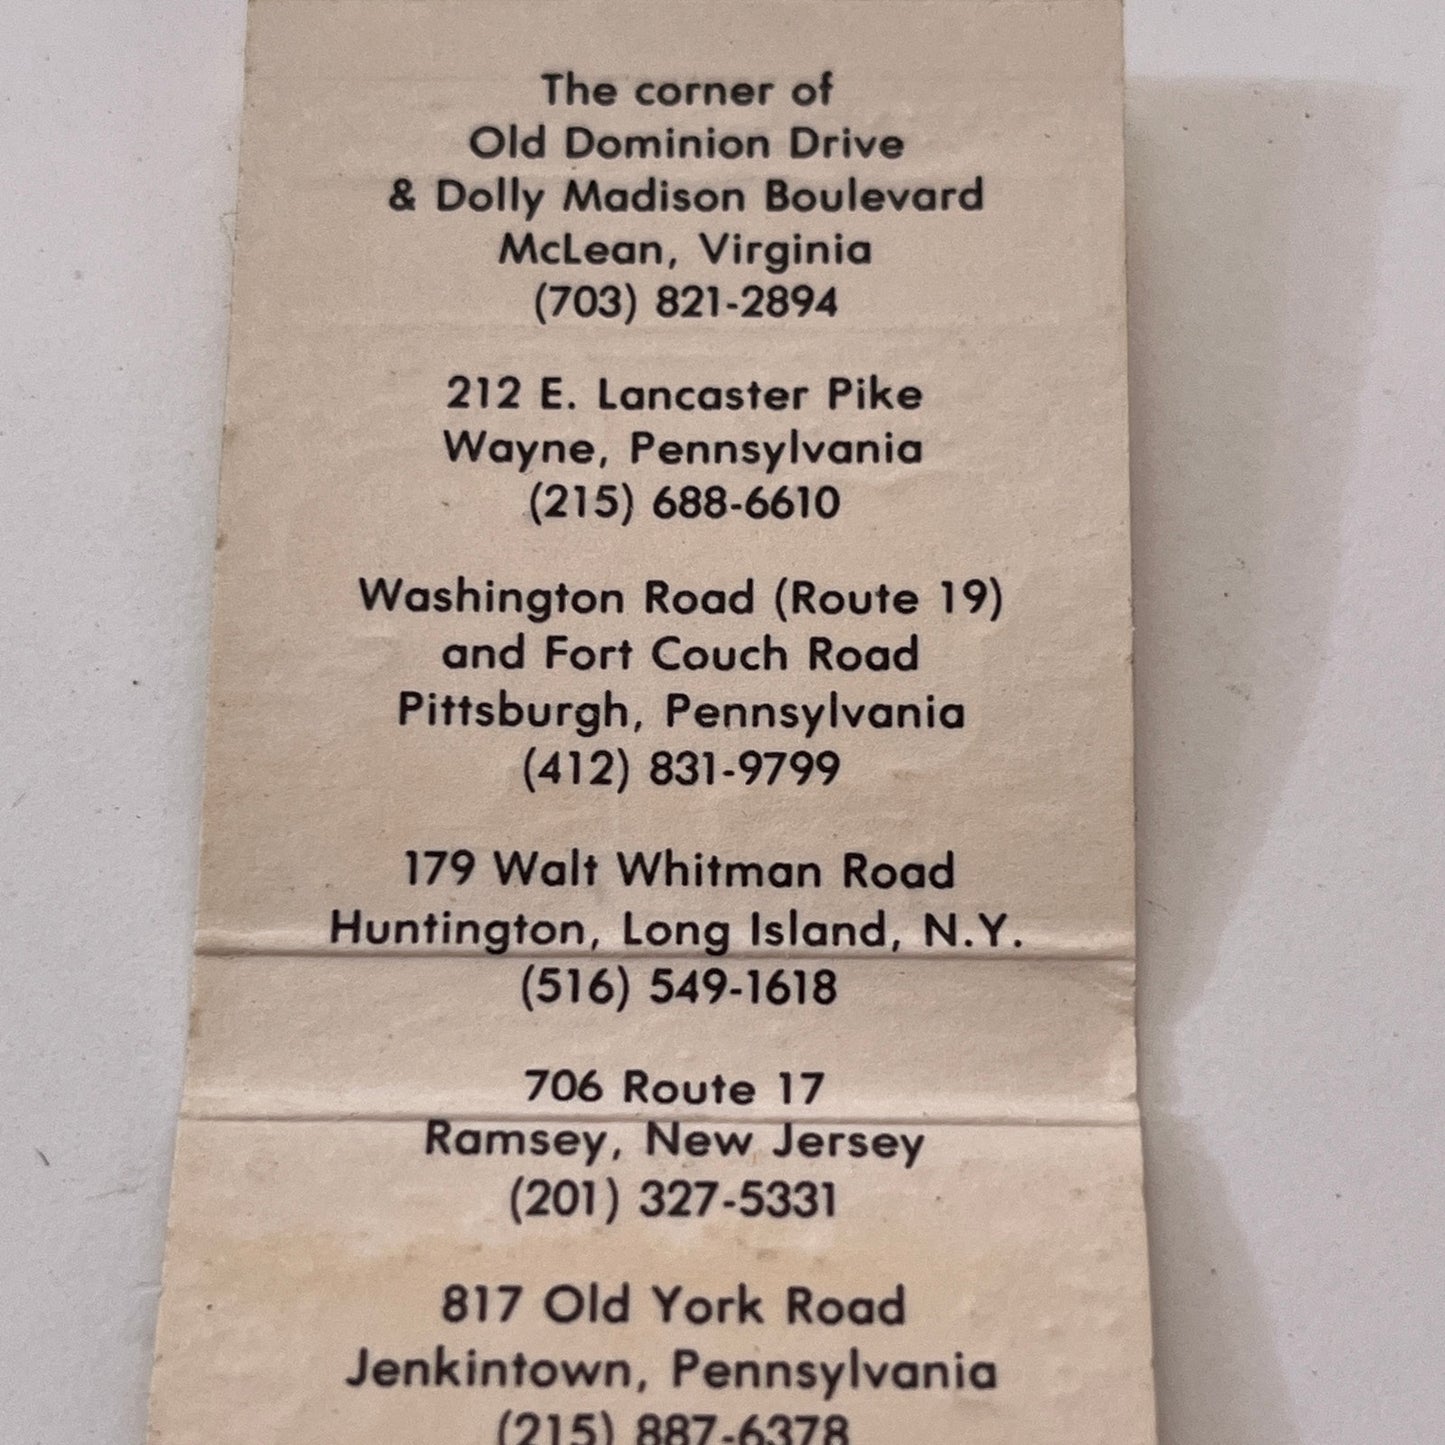 The corner of
Old Dominion Drive
& Dolly Madison Boulevard
McLean, Virginia
(703) 821-2894
212 E. Lancaster Pike
Wayne, Pennsylvania
(215) 688-6610
Washington Road (Route 19)
and Fort Couch Road
Pittsburgh, Pennsylvania
(412) 831-9799
179 Walt Whitman Road
Huntington, Long Island, N.Y.
(516) 549-1618
706 Route 17
Ramsey, New Jersey
(201) 327-5331
817 Old York Road
Jenkintown, Pennsylvania
(215) 887-6378